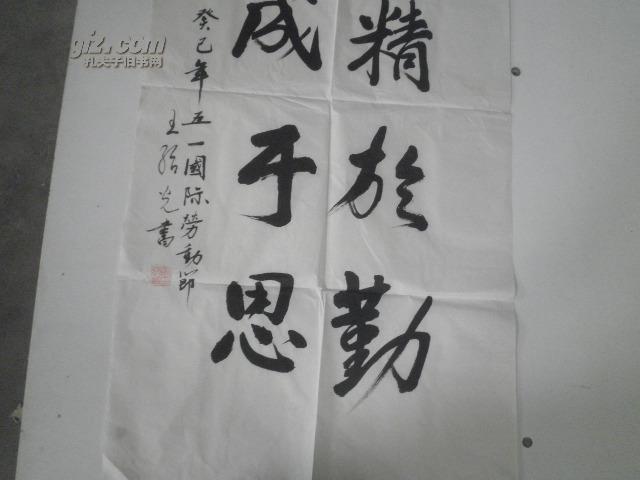 精於勤
成于思
癸已年五一國际勞動節
王
光書
gjz.com
孔夫子旧书网